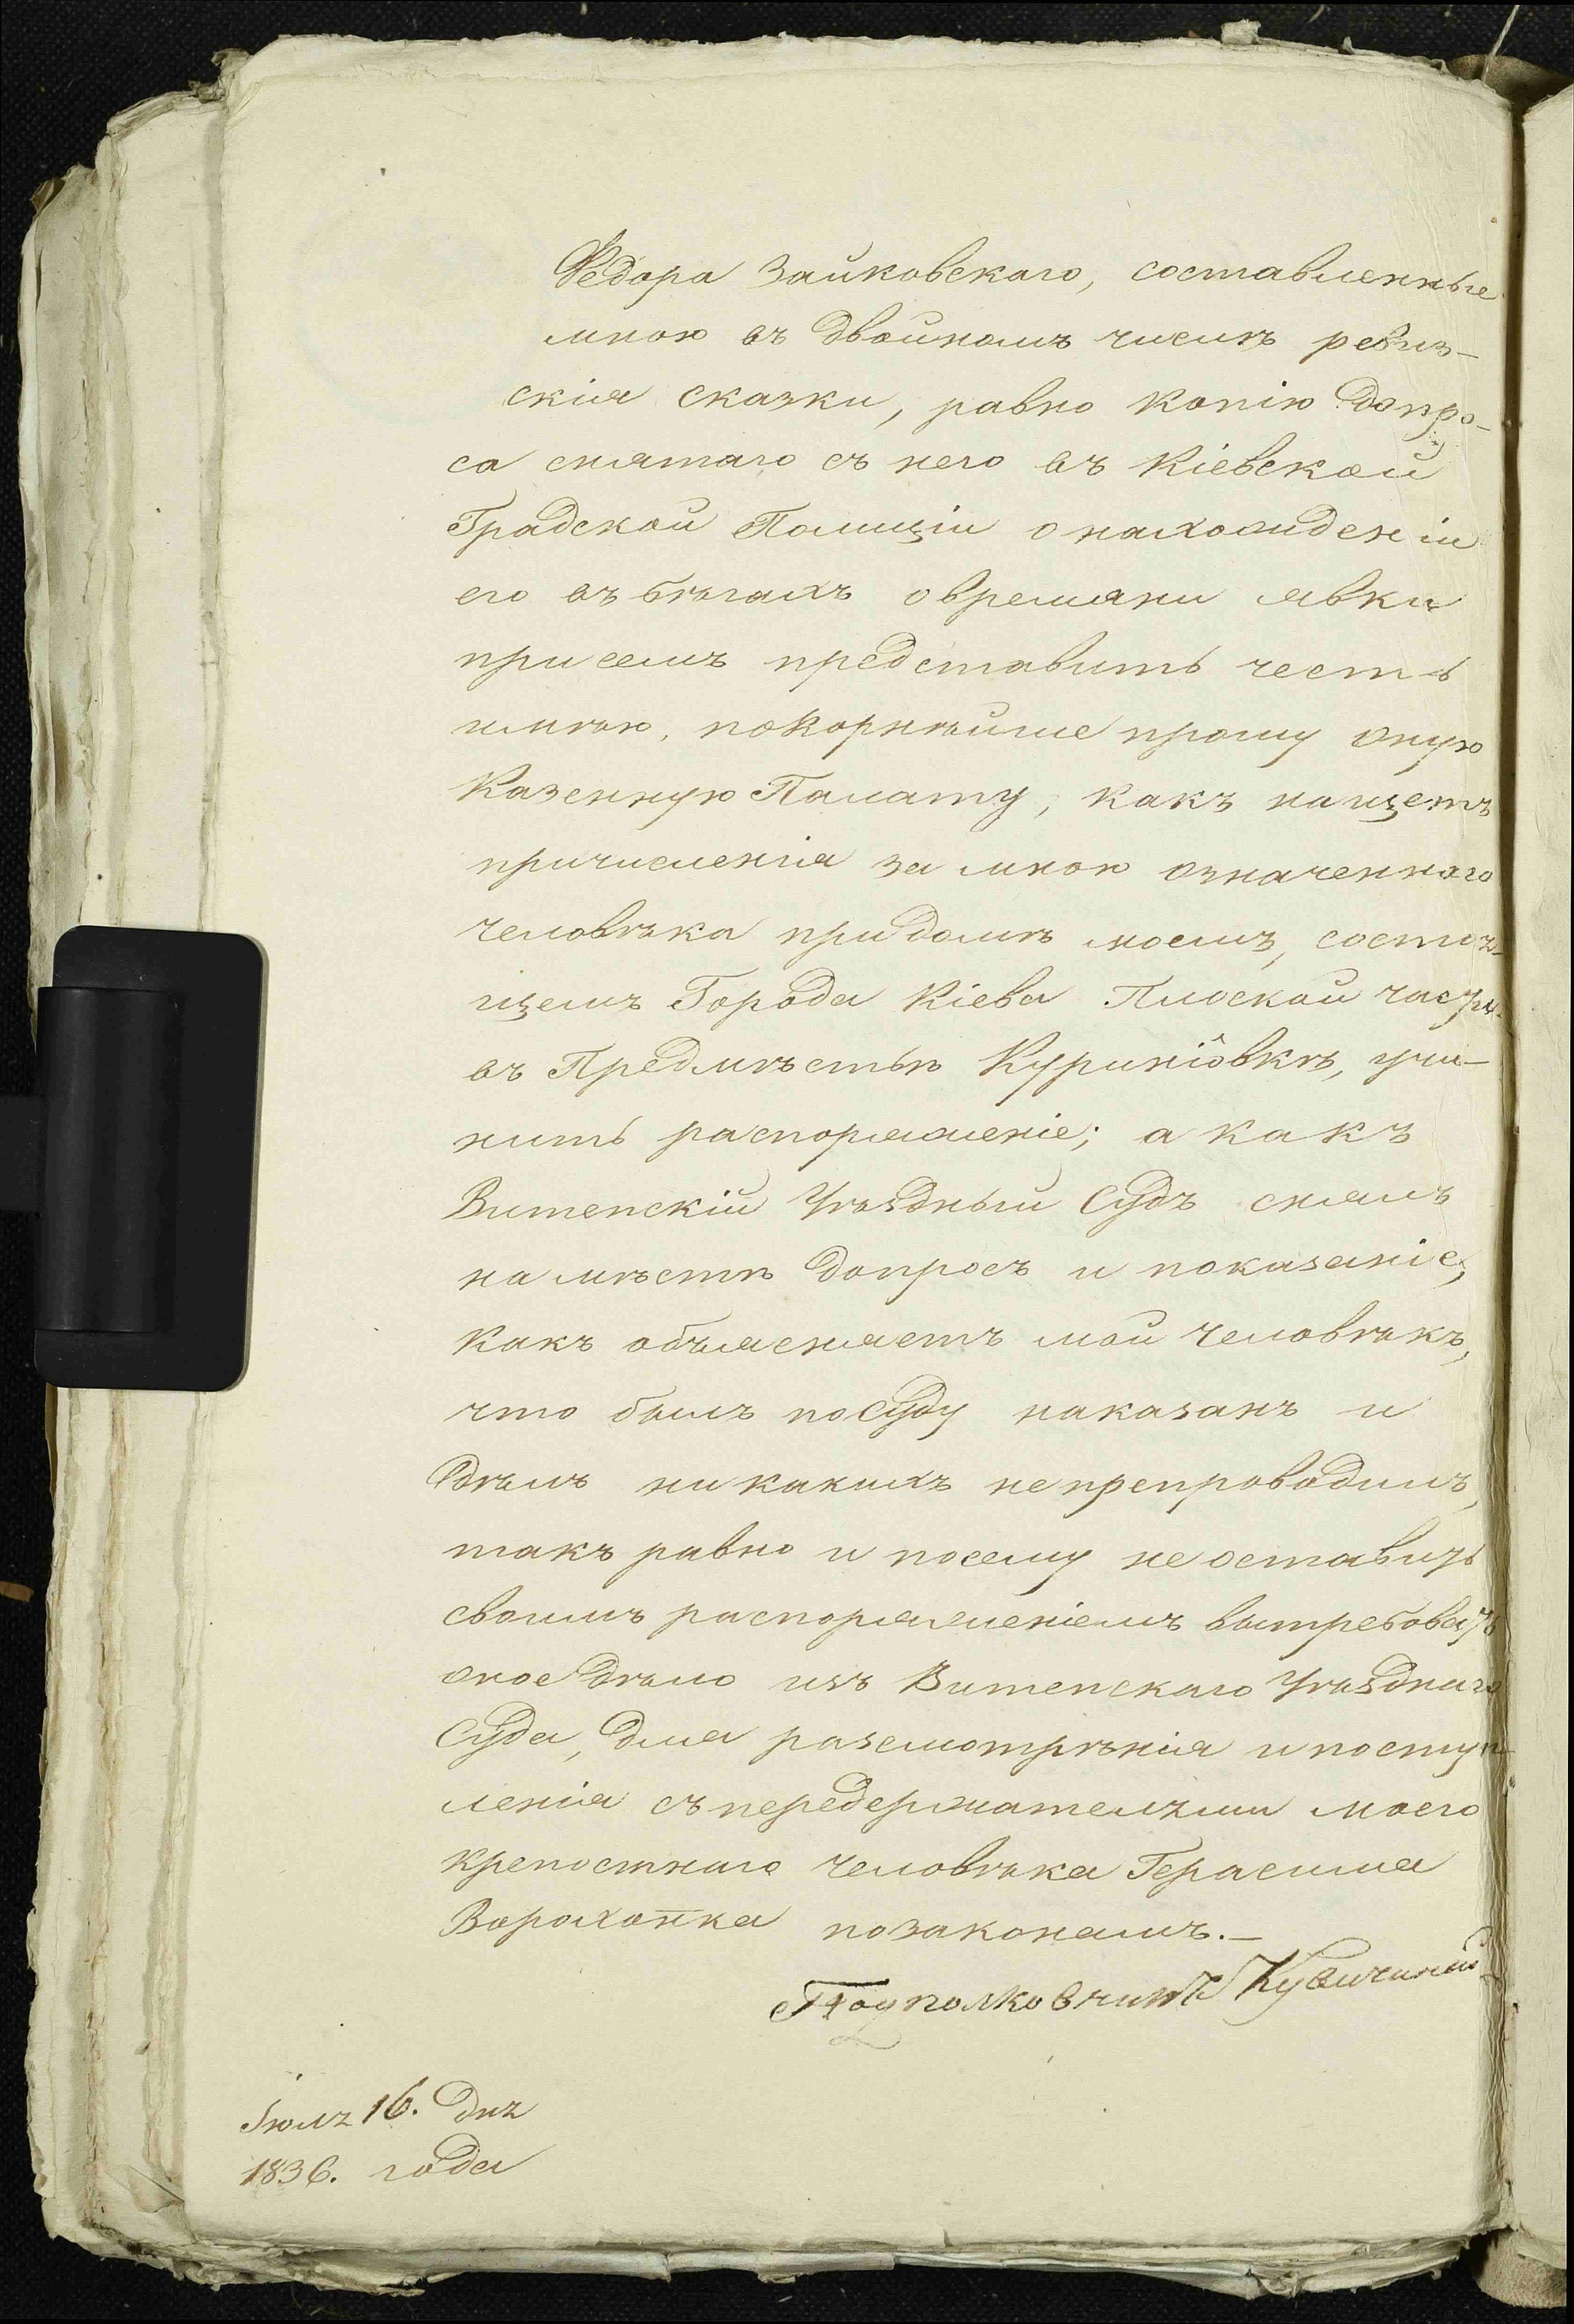 Федора Зайковскаго, составленные
мною въ двойномъ числѣ ревиз-
скія сказки, равно копію допро-
са снятаго съ него въ Кіевской
Градской Полиціи о нахожденіи
его въ бѣгахъ о времяни явки
при семъ представить честь
имѣю, покорнѣйше прошу оную
Казенную Палату, какъ нащетъ
причисленія за мною означеннаго
человѣка при домѣ моемъ, состоя-
щемъ Города Кіева Плоской части
въ Предмѣстьѣ Куринiовкѣ, учи-
нить распоряженіе; а какъ
Витепскій Уѣздный Судъ снялъ
на мѣстѣ допросъ и показаніе,
какъ объясняетъ мой человѣкъ,
что былъ по Суду наказанъ и
дѣлъ ни какихъ не препроводилъ,
такъ равно и посему не оставить
своимъ распоряженіемъ вытребовать
оное дѣло изъ Витепскаго Уѣзднаго
Суда, для разсмотрѣнія и поступ-
ленія съ передержателями моего
крепостнаго человѣка Герасима
Ворохопка по законамъ.—
Подполковникъ
Іюля 16. дня
1836. года